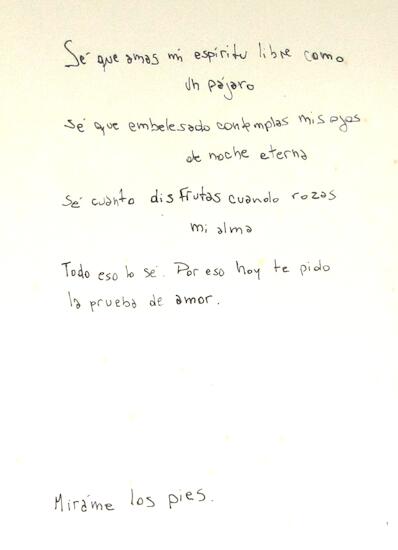 Sé que amas mi espíritu libre como
un pájaro
Sé que embelesado contemplas mis ojos
de noche eterna
Sé cuánto disfrutas cuando rozas
mi alma
Todo eso lo sé. Por eso hoy te pido
la prueba de amor.
Miráme los pies.